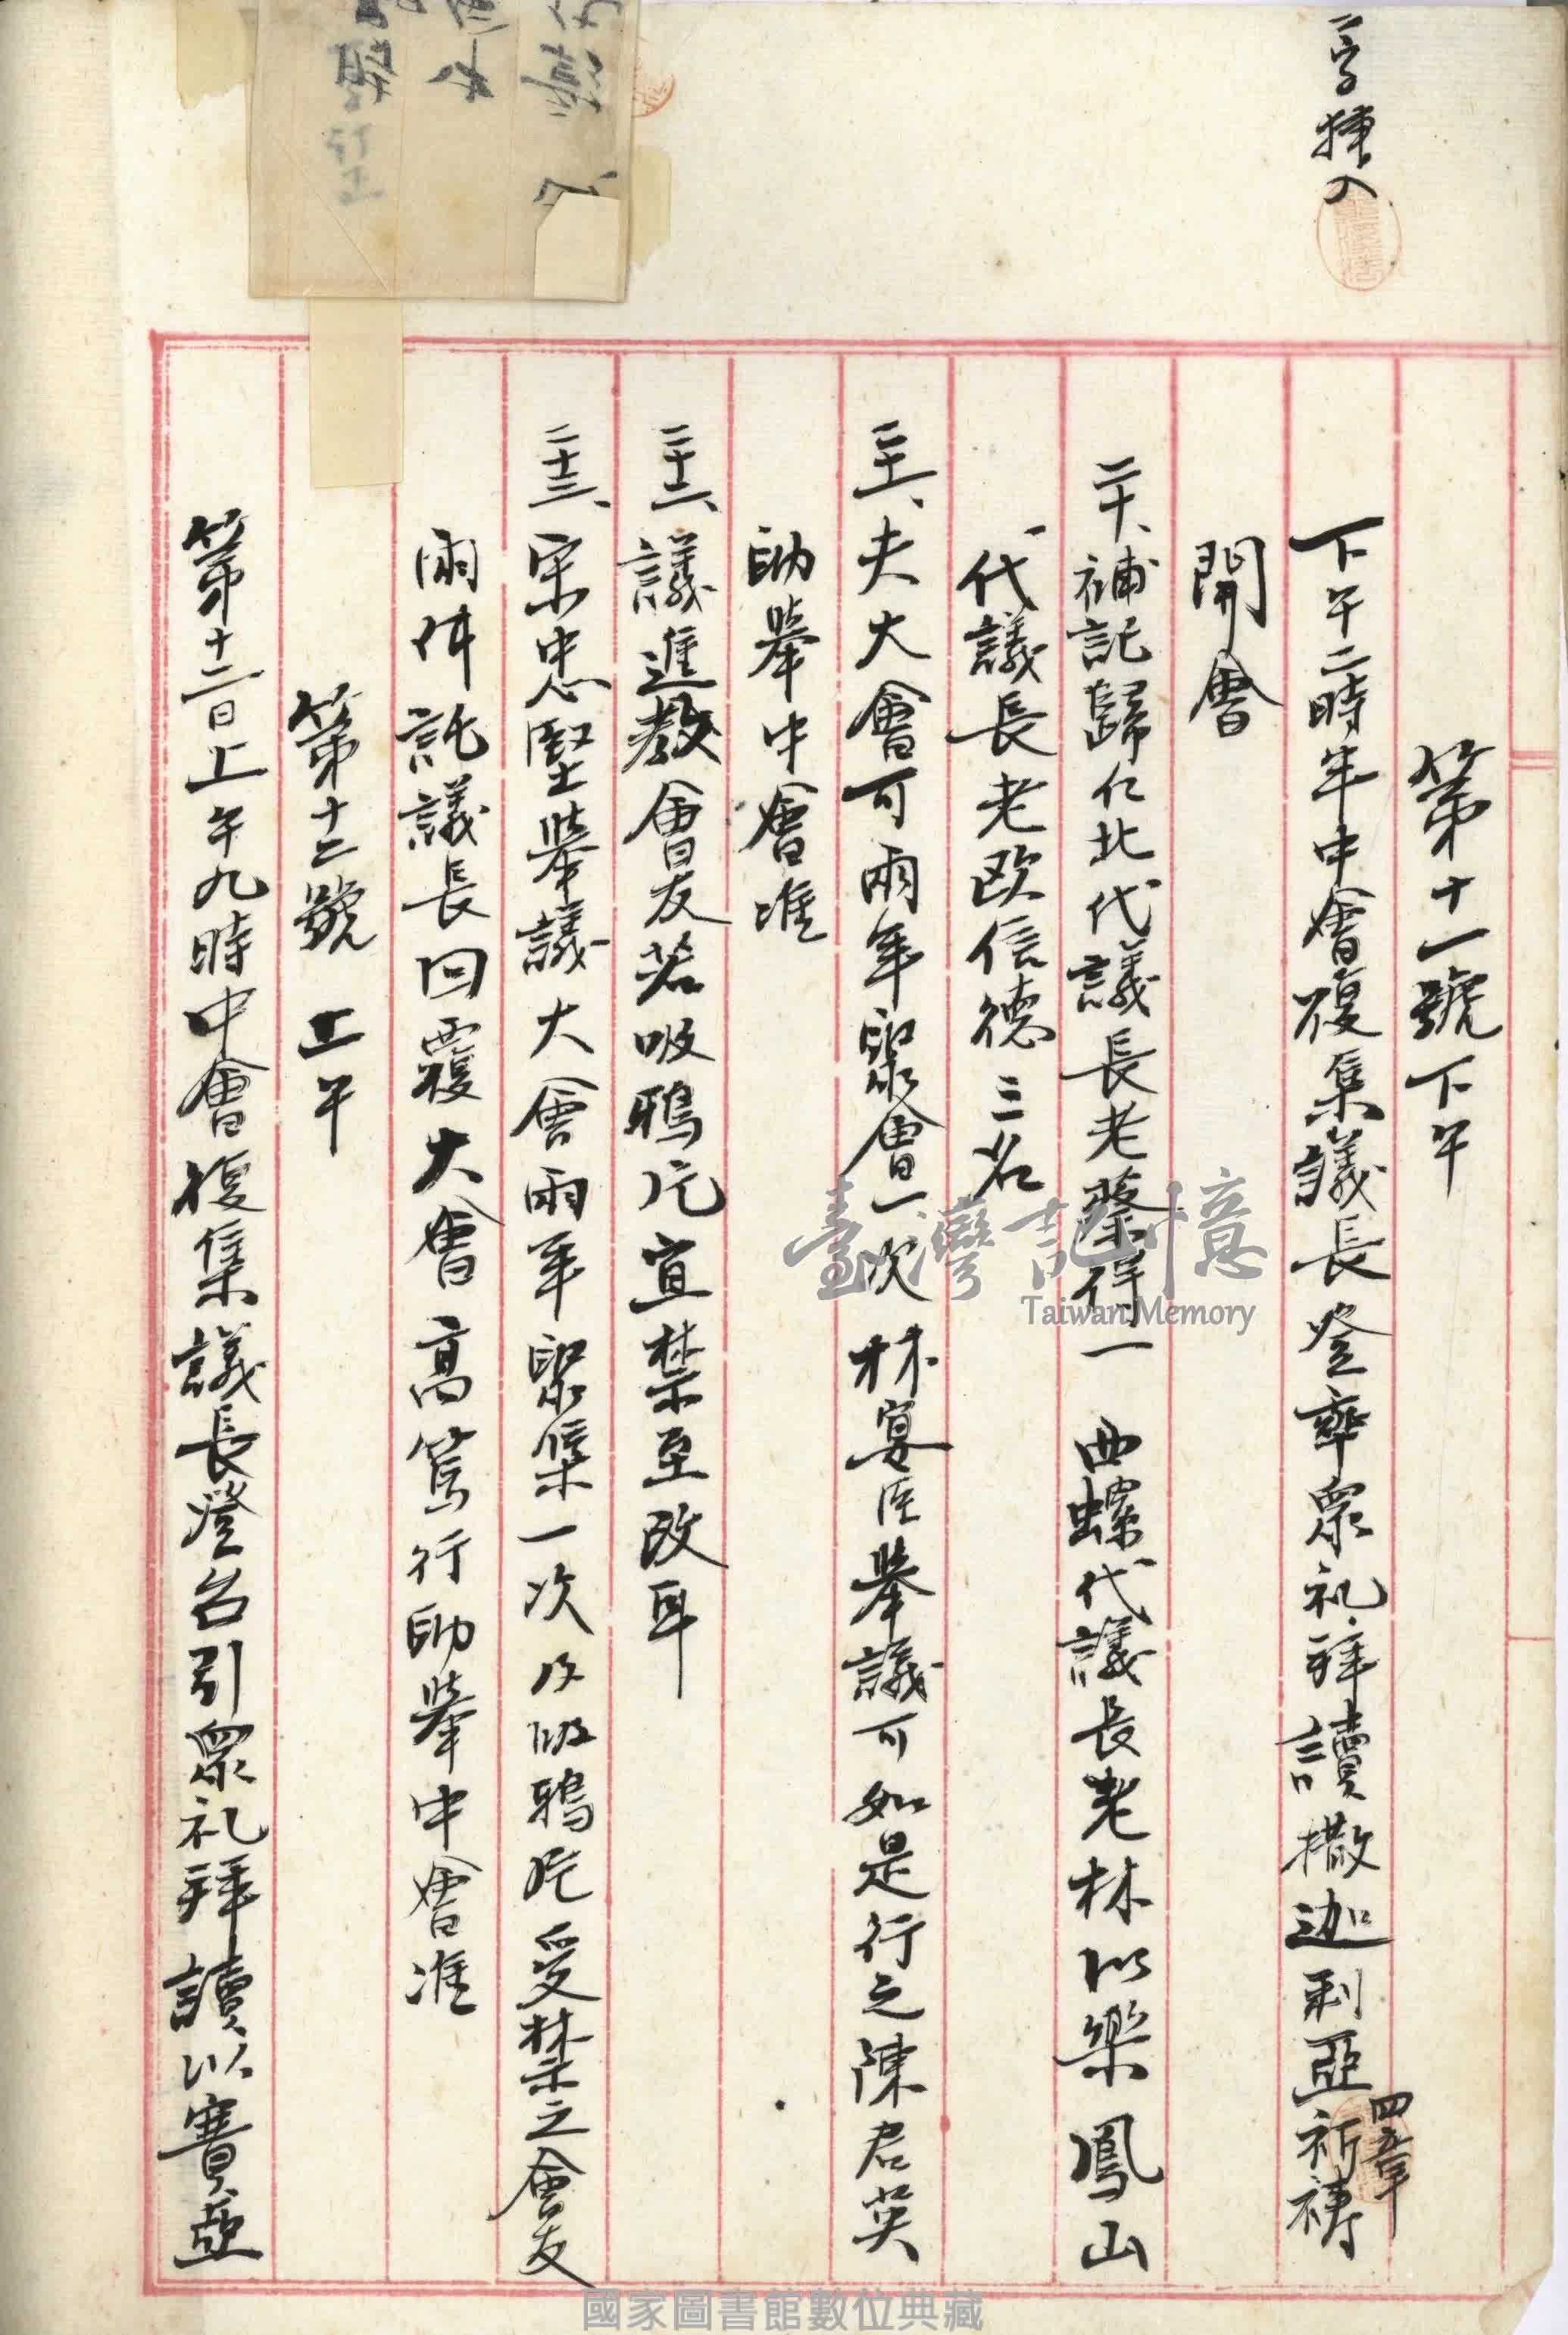 三字揷入
第十一號 下午
下午二時半中會復集議長登率衆礼拜讀撒迦利亞四五章祈禱
開會
二十、補記歸仁北代議長老蔡得一 西螺代議長老林以樂 鳳山
代議長老歐信德三名
二十一、夫大會可兩年聚會一次 林宴臣舉議可如是行之陳君英
助舉中會准
二十二、議進教會友若吸鴉片宜禁至改耳
二十三、宋忠堅舉議大會兩年聚集一次及吸鴉片受禁之會友
兩件託議長回覆大會 高篤行助舉中會准
第十二號 上午
第十二日上午九時中會復集議長登名引衆礼拜讀以賽亞
臺灣記憶
Taiwan Memory
國家圖書館數位典藏